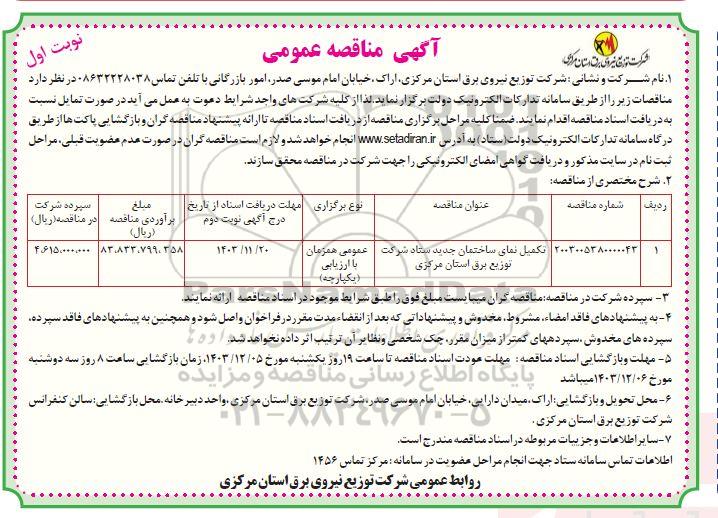 آگهی مناقصه عمومی
نوبت اول
شرکت توزیع نیروی برق استان مرکزی
۱. نام شرکت و نشانی: شرکت توزیع نیروی برق استان مرکزی، اراک، خیابان امام موسی صدر، امور بازرگانی با تلفن تماس ۰۸۶۳۲۲۲۸۰۳۸ در نظر دارد
مناقصات زیر را از طریق سامانه تدارکات الکترونیک دولت برگزار نماید. لذا از کلیه شرکت های واجد شرایط دعوت به عمل می آید در صورت تمایل نسبت
به دریافت اسناد مناقصه اقدام نمایند. ضمنا کلیه مراحل برگزاری مناقصه از دریافت اسناد مناقصه تا ارائه پیشنهاد مناقصه گران و بازگشایی پاکت ها از طریق
درگاه سامانه تدارکات الکترونیک دولت (ستاد) به آدرس www.setadiran.ir انجام خواهد شد و لازم است مناقصه گران در صورت عدم عضویت قبلی، مراحل
ثبت نام در سایت مذکور و دریافت گواهی امضای الکترونیکی را جهت شرکت در مناقصه محقق سازند.
۲. شرح مختصری از مناقصه:
ردیف شماره مناقصه عنوان مناقصه نوع برگزاری مهلت دریافت اسناد از تاریخ درج آگهی نوبت دوم مبلغ برآوردی مناقصه (ریال) سپرده شرکت در مناقصه(ریال)
۱ ۲۰۰۳۰۰۵۳۸۰۰۰۰۰۴۳ تکمیل نمای ساختمان جدید ستاد شرکت توزیع برق استان مرکزی عمومی همزمان با ارزیابی (یکپارچه) ۱۴۰۳/۱۱/۲۰ ۸۳،۸۳۳،۷۹۹،۳۵۸ ۴،۶۱۵،۰۰۰،۰۰۰
۳- سپرده شرکت در مناقصه: مناقصه گران میبایست مبلغ فوق را طبق شرایط موجود در اسناد مناقصه ارائه نمایند.
۴- به پیشنهادهای فاقد امضاء، مشروط، مخدوش و پیشنهاداتی که بعد از انقضاء مدت مقرر در فراخوان واصل شود و همچنین به پیشنهادهای فاقد سپرده،
سپرده های مخدوش، سپردههای کمتر از میزان مقرر، چک شخصی ونظایر آن ترتیب اثر داده نخواهد شد.
۵- مهلت وبازگشایی اسناد مناقصه: مهلت عودت اسناد مناقصه تا ساعت ۱۹ روز یکشنبه مورخ ۱۴۰۳/۱۲/۰۵، زمان بازگشایی ساعت ۸ روز سه دوشنبه
مورخ ۱۴۰۳/۱۲/۰۶ میباشد
۶- محل تحویل وبازگشایی: اراک، میدان دارایی، خیابان امام موسی صدر، شرکت توزیع برق استان مرکزی، واحد دبیرخانه. محل بازگشایی: سالن کنفرانس
شرکت توزیع برق استان مرکزی.
۷- سایر اطلاعات و جزییات مربوطه در اسناد مناقصه مندرج است.
اطلاعات تماس سامانه ستاد جهت انجام مراحل عضویت در سامانه: مرکز تماس ۱۴۵۶
روابط عمومی شرکت توزیع نیروی برق استان مرکزی
ParsNamadData
پایگاه اطلاع رسانی مناقصه و مزایده
۰۲۱-۸۸۳۴۹۶۷۰-۵